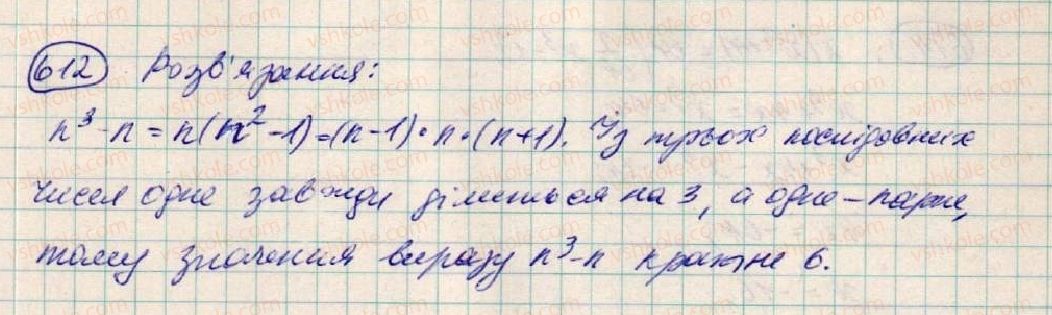 612 Розв'язання:
n³-n=n(n²-1)=(n-1)·n·(n+1). Із трьох послідовних
чисел одне завжди ділиться на 3, а одне – парне,
тому значення виразу n³-n кратне 6.